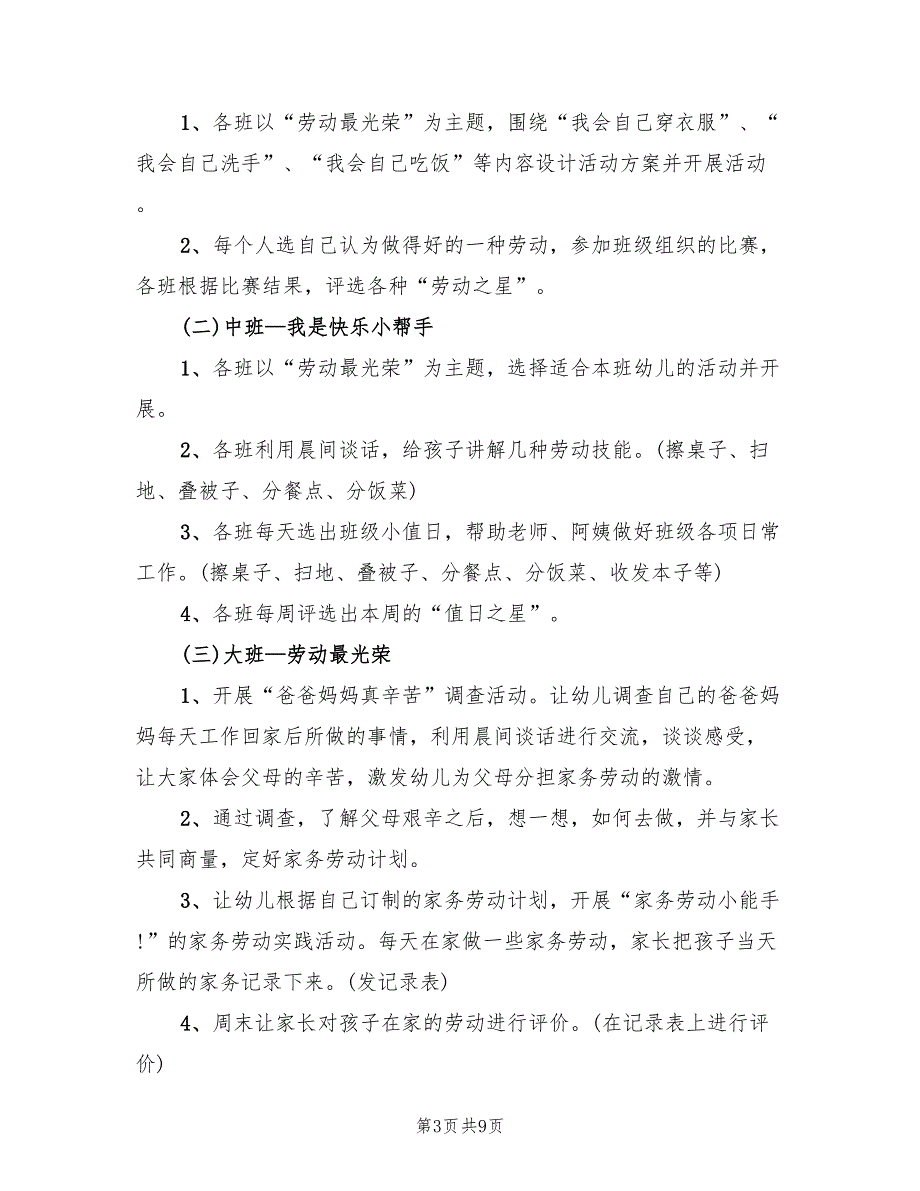 1、各班以“劳动最光荣”为主题，围绕“我会自己穿衣服”、“
我会自己洗手”、“我会自己吃饭”等内容设计活动方案并开展活动
。
2、每个人选自己认为做得好的一种劳动，参加班级组织的比赛，
各班根据比赛结果，评选各种“劳动之星”。
(二)中班—我是快乐小帮手
1、各班以“劳动最光荣”为主题，选择适合本班幼儿的活动并开
展。
2、各班利用晨间谈话，给孩子讲解几种劳动技能。(擦桌子、扫
地、叠被子、分餐点、分饭菜)
3、各班每天选出班级小值日，帮助老师、阿姨做好班级各项日常
工作。(擦桌子、扫地、叠被子、分餐点、分饭菜、收发本子等)
4、各班每周评选出本周的“值日之星”。
(三)大班—劳动最光荣
1、开展“爸爸妈妈真辛苦”调查活动。让幼儿调查自己的爸爸妈
妈每天工作回家后所做的事情，利用晨间谈话进行交流，谈谈感受，
让大家体会父母的辛苦，激发幼儿为父母分担家务劳动的激情。
2、通过调查，了解父母艰辛之后，想一想，如何去做，并与家长
共同商量，定好家务劳动计划。
3、让幼儿根据自己订制的家务劳动计划，开展“家务劳动小能手
!”的家务劳动实践活动。每天在家做一些家务劳动，家长把孩子当天
所做的家务记录下来。(发记录表)
4、周末让家长对孩子在家的劳动进行评价。(在记录表上进行评
价)
第3页共9页